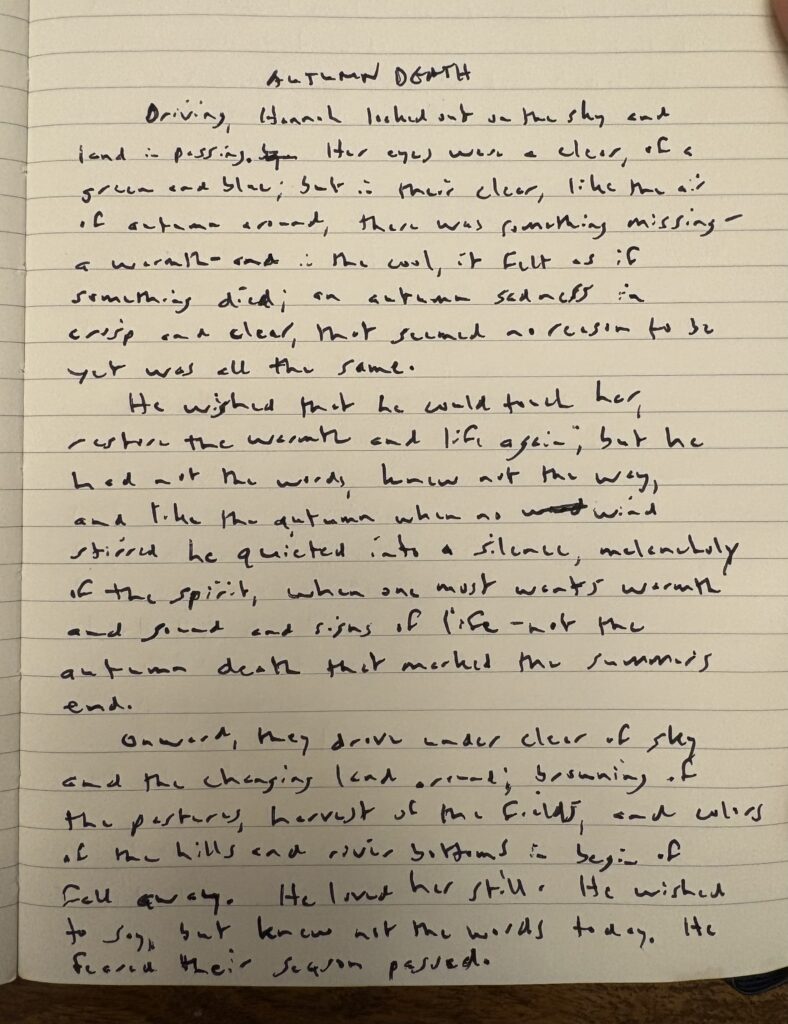 AUTUMN DEATH
Driving, Hannah looked out on the sky and
land in passing. Her eyes were a clear, of a
green and blue; but in their clear, like the air
of autumn around, there was something missing-
a warmth-and in the cool, it felt as if
something died; an autumn sadness in
crisp and clear, that seemed no reason to be
yet was all the same.
He wished that he could touch her,
restore the warmth and life again; but he
had not the words, knew not the way,
and like the autumn when no wind
stirred he quieted into a silence, melancholy
of the spirit, when one most wants warmth
and sound and signs of life-not the
autumn death that marked the summers
end.
Onward, they drove under clear of sky
and the changing land around; browning of
the pastures, harvest of the fields, and colors
of the hills and river bottoms in begin of
fall away. He loved her still. He wished
to say, but knew not the words today. He
feared their season passed.